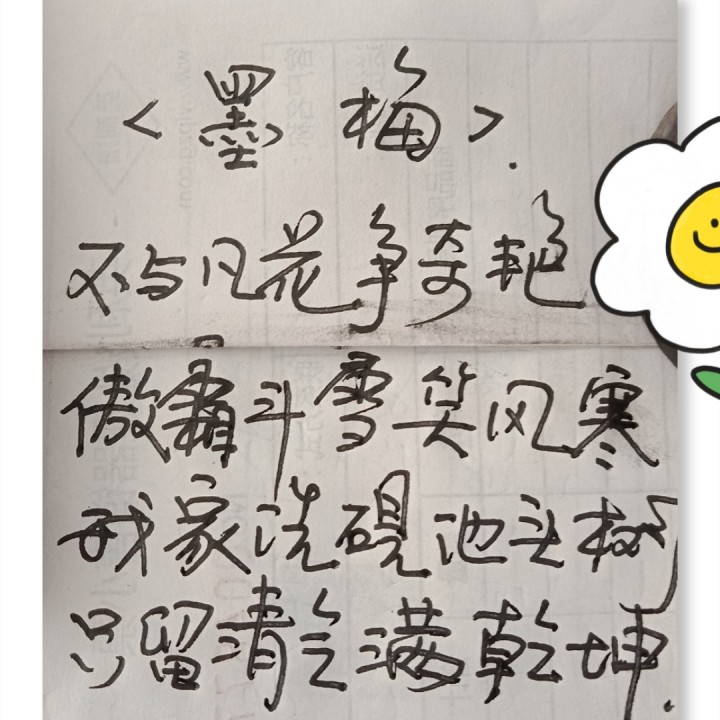 <墨梅>.
不与凡花争奇艳
傲霜斗雪笑风寒
我家洗砚池头树
只留清气满乾坤.